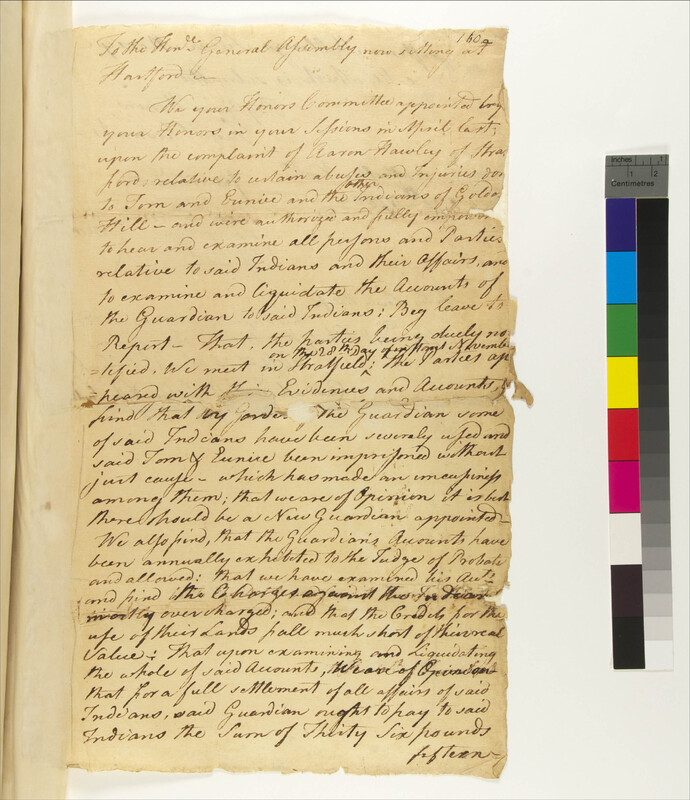 160a
To the Honble General Assembly now sitting at
Hartford
We your Honors Committee appointed by
your Honors in your Sessions in April last;
upon the complaint of Aaron Hawley of Strat
ford, relative to certain abuses and Injuries don
to Tom and Eunice and the other Indians of Golde
Hill – and were authorized and fully empower
to hear and examine all persons and Parties
relative to said Indians and their Affairs, and
to examine and liquidate the Accounts of
the Guardian to said Indians; Beg leave to
Report – That, the parties being duely no
on the 28th Day of November
=tified, We meet in Stratfield; the Parties ap
peared with Evidences and Accounts,
find that by The Guardian some
of said Indians have been severely used and
said Tom & Eunice been imprisoned without
just cause – which has made an uneasiness
among them; that we are of Opinion it is best
there should be a New Guardian appointed –
We also find, that the Guardians Accounts have
been annually exhibited to the Judge of Probate
and allowed: that we have examined his Accts
and find the Charges against the Indians
mostly overcharged; and that the Credits for the
use of their Lands fall much short of their real
Value: That upon examining and Liquidating
the whole of said Accounts, We are of Opinion
that for a full settlement of all affairs of said
Indians, said Guardian ought to pay to said
Indians the Sum of Thirty Six pounds
fifteen=
Inches 1
1 2
Centimetres